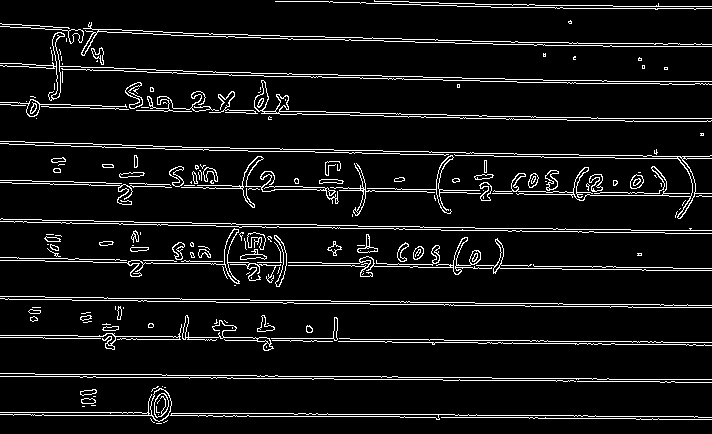 ∫₀^{π/4} sin 2x dx
= -1/2 sin (2 · π/4) - (-1/2 cos (2 · 0))
= -1/2 sin (π/2) + 1/2 cos (0)
= -1/2 · 1 + 1/2 · 1
= 0